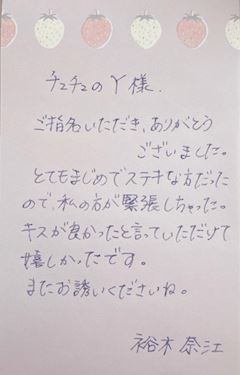 チュチュのY様.
ご指名いただき、ありがとう
ございました。
とてもまじめでステキな方だった
ので、私の方が緊張しちゃった。
キスが良かったと言っていただけて
嬉しかったです。
またお誘いくださいね。
裕木奈江